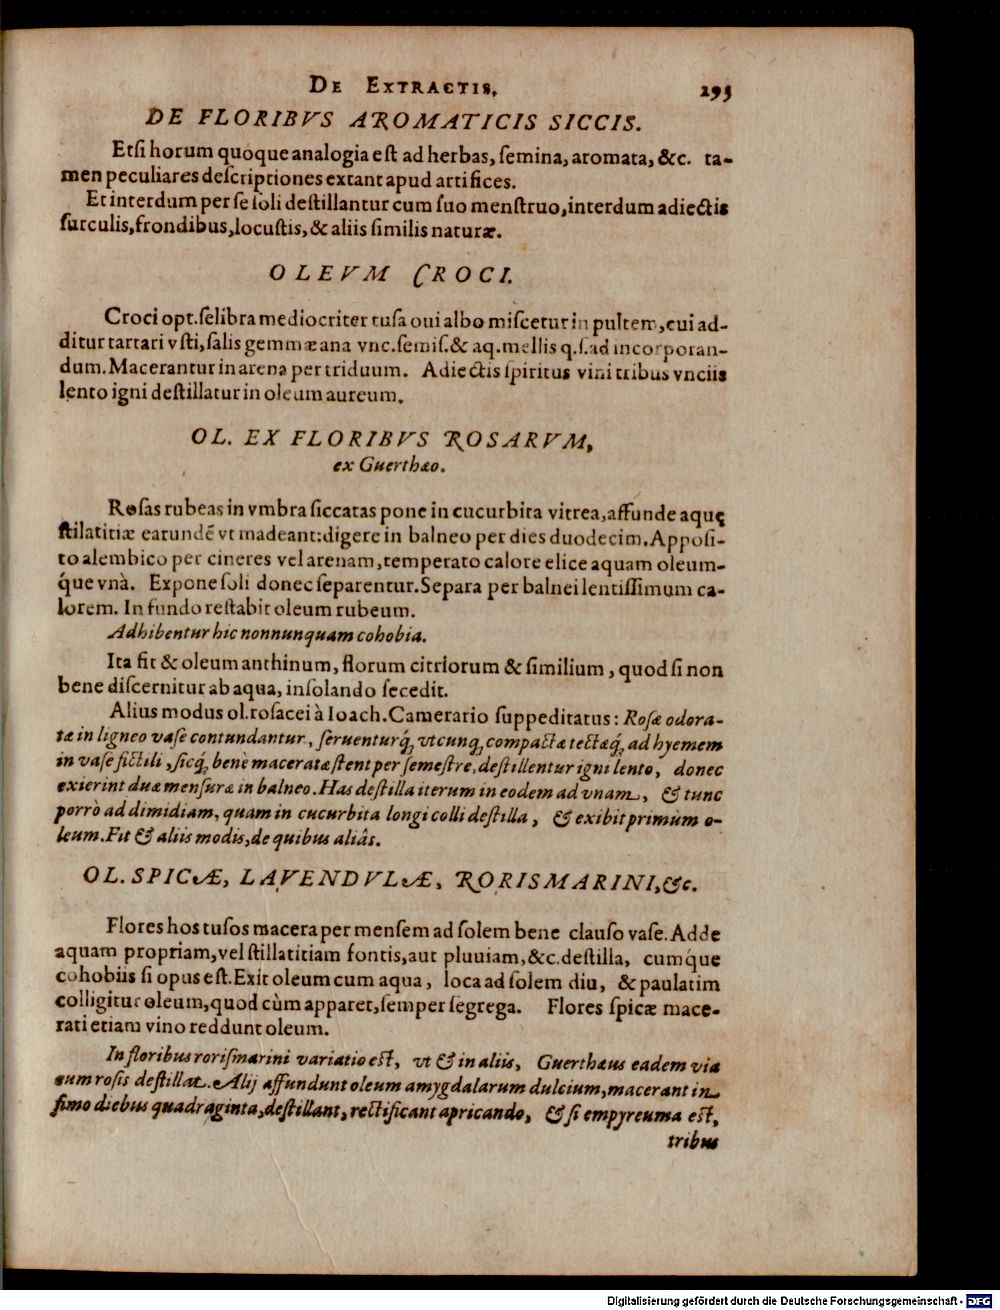 DE EXTRACTIS. 295
DE FLORIBVS AROMATICIS SICCIS.
Etsi horum quoque analogia est ad herbas, semina, aromata, &c. ta-
men peculiares descriptiones extant apud artifices.
Et interdum per se soli destillantur cum suo menstruo, interdum adiectis
surculis, frondibus, locustis, & aliis similis naturæ.
OLEVM CROCI.
Croci opt. selibra mediocriter tusa oui albo miscetur in pultem, cui ad-
ditur tartari vsti, salis gemmæ ana vnc. semis. & aq. mellis q. s. ad incorporan-
dum. Macerantur in arena per triduum. Adiectis spiritus vini tribus vnciis
lento igni destillatur in oleum aureum.
OL. EX FLORIBVS ROSARVM,
ex Guerthæo.
Rosas rubeas in vmbra siccatas pone in cucurbita vitrea, affunde aquę
stilatitiæ earundē vt madeant: digere in balneo per dies duodecim. Apposi-
to alembico per cineres vel arenam, temperato calore elice aquam oleum-
q́ue vnà. Expone soli donec separentur. Separa per balnei lentissimum ca-
lorem. In fundo restabit oleum rubeum.
Adhibentur hic nonnunquam cohobia.
Ita fit & oleum anthinum, florum citriorum & similium, quod si non
bene discernitur ab aqua, insolando secedit.
Alius modus ol. rosacei à Ioach. Camerario suppeditatus: Rosæ odora-
tæ in ligneo vase contundantur, seruenturq́, vtcunq, compactæ tectæq́, ad hyemem
in vase fictili, sicq́, benè maceratæ stent per semestre, destillentur igni lento, donec
exierint duæ mensuræ in balneo. Has destilla iterum in eodem ad vnam, & tunc
porrò ad dimidiam, quam in cucurbita longi colli destilla, & exibit primum o-
leum. Fit & aliis modis, de quibus aliâs.
OL. SPICÆ, LAVENDVLÆ, RORISMARINI, &c.
Flores hos tusos macera per mensem ad solem bene clauso vase. Adde
aquam propriam, vel stillatitiam fontis, aut pluuiam, &c. destilla, cumque
cohobiis si opus est. Exit oleum cum aqua, loca ad solem diu, & paulatim
colligitur oleum, quod cùm apparet, semper segrega. Flores spicæ mace-
rati etiam vino reddunt oleum.
In floribus rorismarini variatio est, vt & in aliis, Guerthæus eadem via
eum rosis destillat. Alij affundunt oleum amygdalarum dulcium, macerant in
fimo diebus quadraginta, destillant, rectificant apricando, & si empyreuma est,
tribus
Digitalisierung gefördert durch die Deutsche Forschungsgemeinschaft - DFG